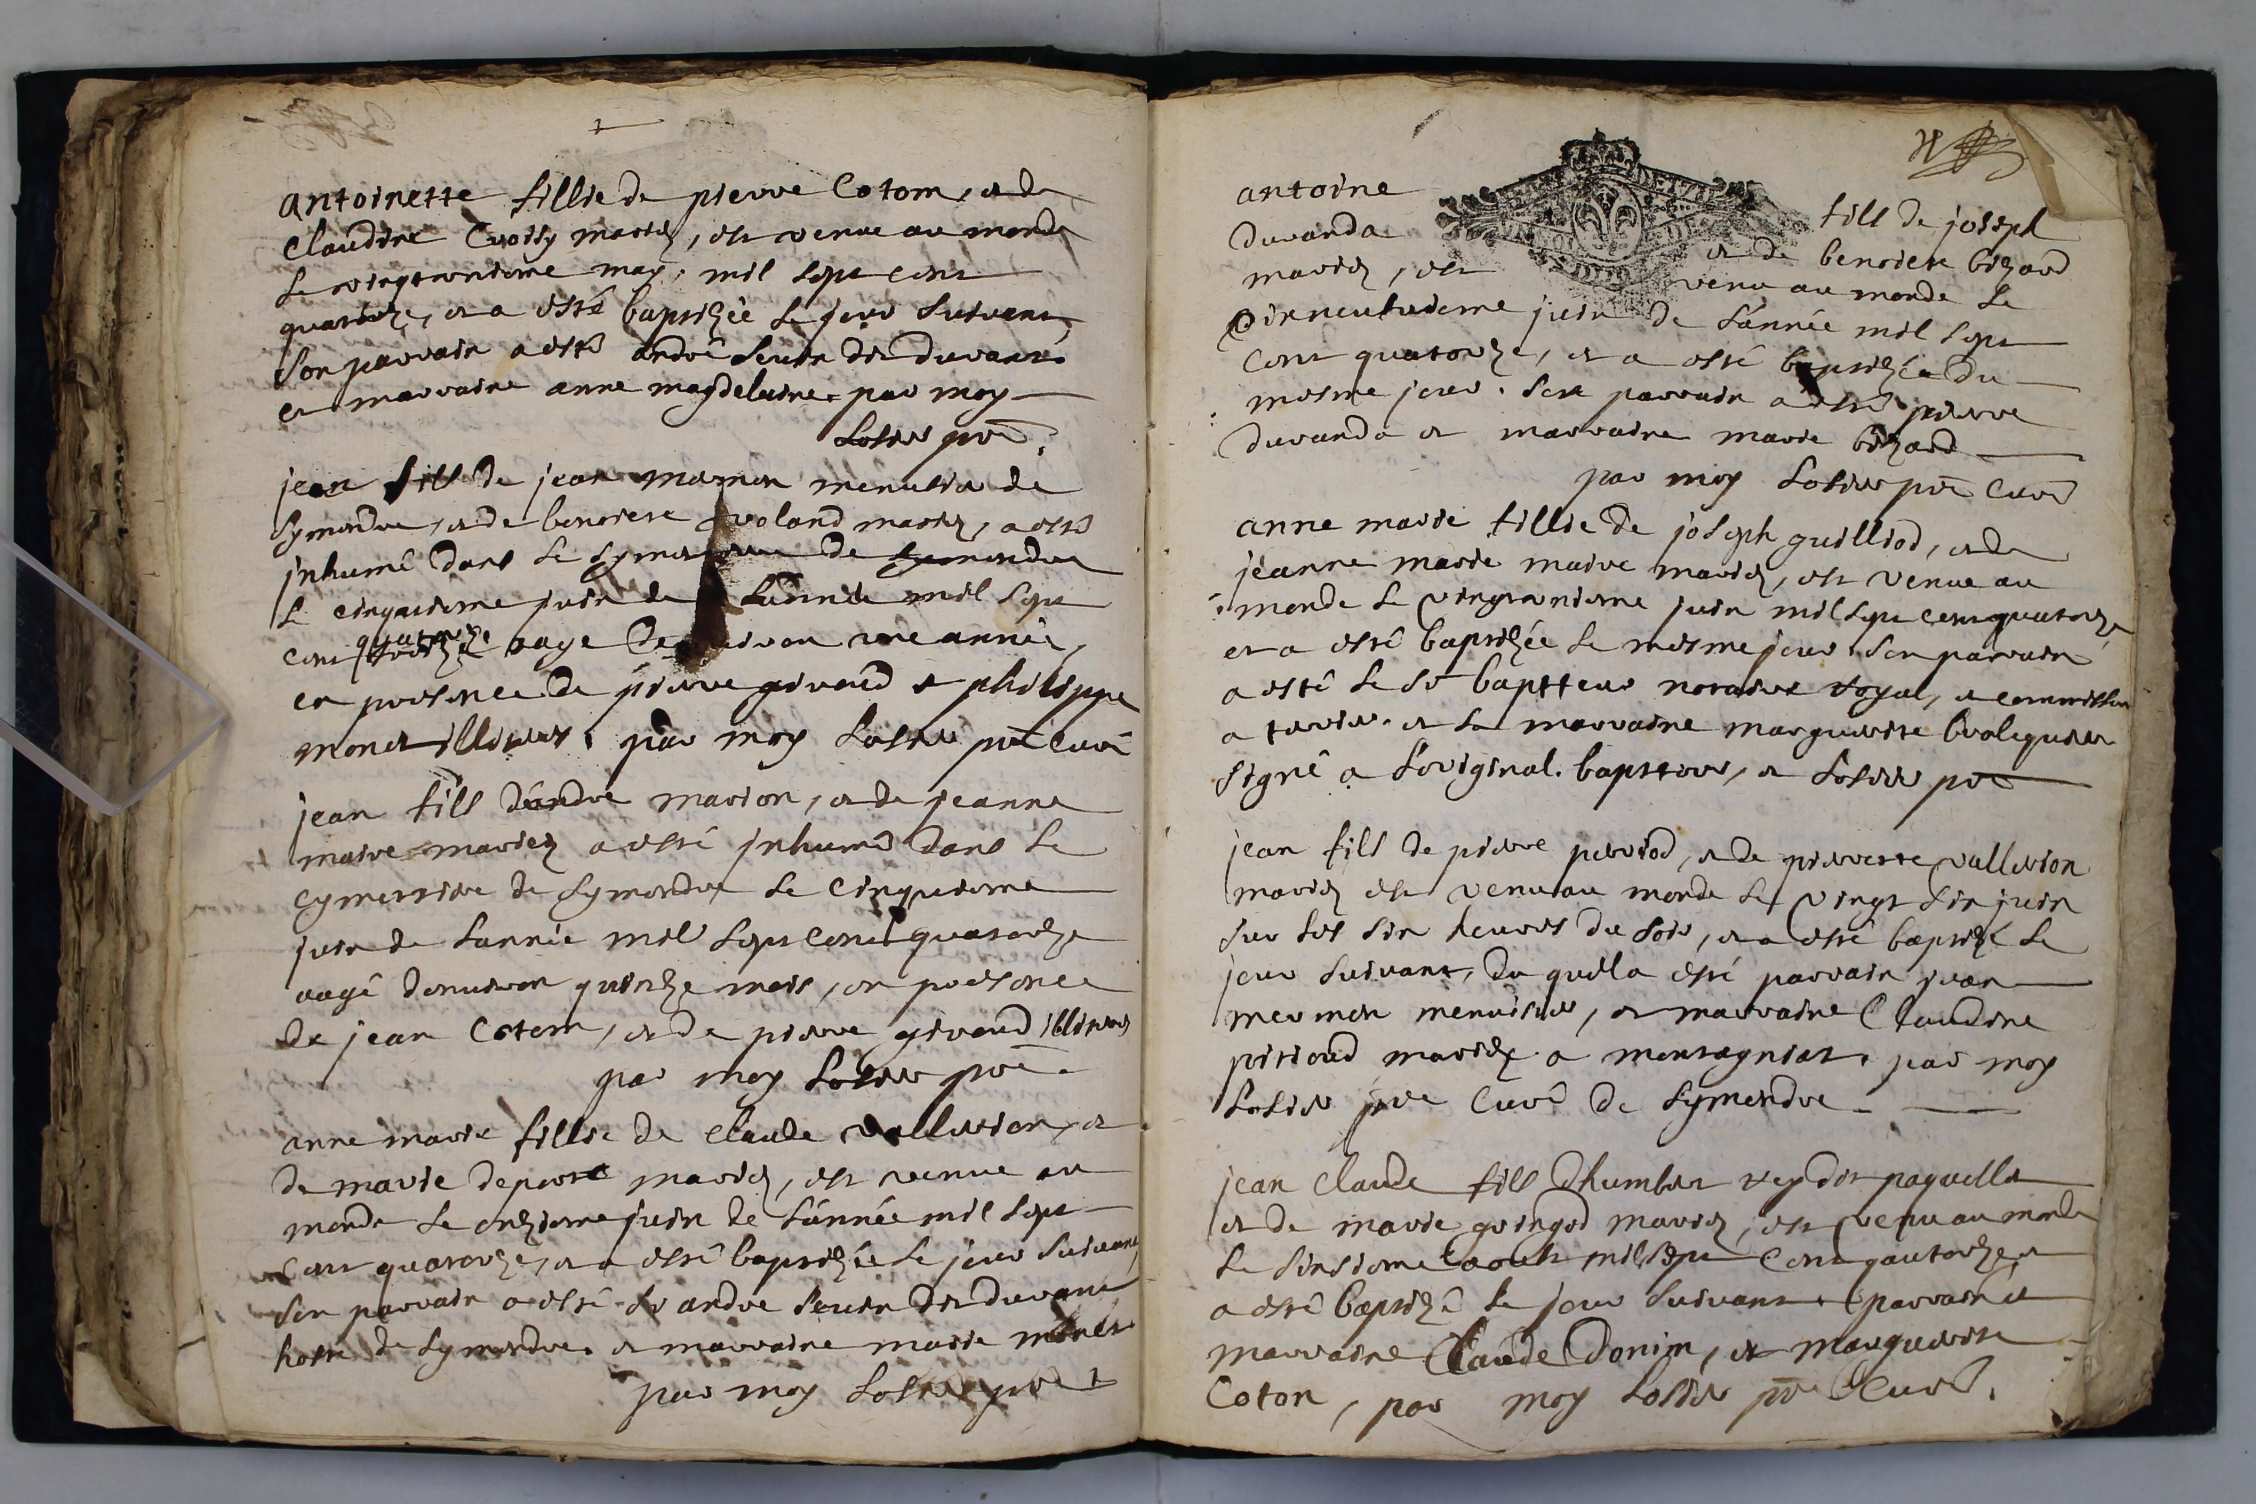 antoinette fillie de pierre Cotom, et de
Claudine Croisy mariez, est venue au monde
le vingtroisieme may, mil sept cent
quatorze, et a esté baptizée le jour suivant
son parrain a esté andré seuin dit durant
et marraine anne magdelaine par moy
Losier pre.
jean fils de jean mermon menusier de
symendre, et de benoiste roland mariez, a esté
jnhumé dans le symetiere de symendre
le cinquieme juin de l'année mil sept
cent quatorze aage denviron une année,
en presence de pierre giroud et philippe
monet illiteres. par moy Losier pre curé
jean fils d'andre marion, et de jeanne
maire mariez a esté jnhumé dans le
cymettiere de symondre le cinquieme
juin de l'année mil sept cent quatorze
aagé denviron quinze mois, en presence
de jean Cotom, et de pierre giroud illiteres
par moy Losier pre.
anne marie fillie de Claude vallerion, et
de marie depierre mariez, est venue au
monde le onzieme juin de l'année mil sept
cent quatorze, et a esté baptizée le jour suivant,
son parrain a esté sr andre seuin dit durant
hoste de symondre. et marraine marie monet
par moy Losier pre
antoine
duranda
mariez, est
fils de joseph
et de benoiste bizard
venu au monde le
dixneufvieme juin de l'année mil sept
cent quatorze, et a esté baptizé du
mesme jour. son parrain a esté pierre
duranda et marraine marie bizard
par moy Losier pre curé
anne marie fillie de joseph guilliod, et de
jeanne marie maire mariez, est venue au
monde le vingtroisieme juin mil sept cent quatorze
et a esté baptizée le mesme jour. son parrain
a esté le sr baptteur notaire royal, et commissaire
a terrier. et la marraine marguerite
signé a l'original. baptteur, et Losier pre
jean fils de pierre perriod, et de pierrette vallerion
mariez est venu au monde le vingt six juin
sur les six heures du soir, et a esté baptizé le
jour suivant, du quel a esté parrain jean
mermon menuisier, et marraine Claudine
pitioud mariéz a montagniat. par moy
Losier pre Curé de symendre
jean Claude fils d'humbert rey dit paquellet
et de marie guingod mariez, est venu au monde
le sixsieme aoust mil sept cent quatorze et
a esté baptizé le jour suivant. parrain et
marraine Claude Donim, et marguerite
Coton, par moy Losier pre Curé.